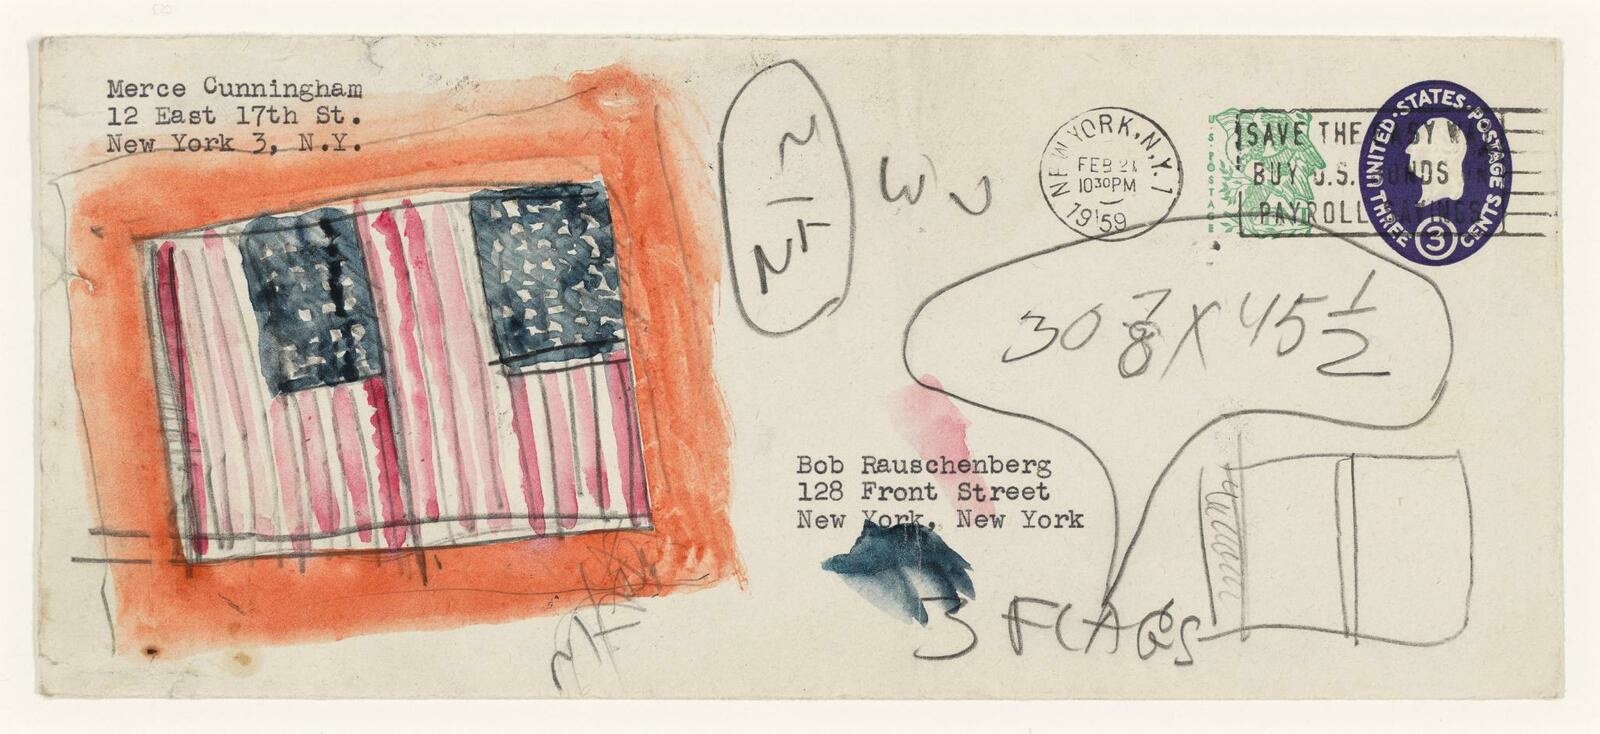 Merce Cunningham
12 East 17th St.
New York 3, N.Y.
NEW YORK, N.Y. 1
FEB 21
10 30 PM
1959
U.S. POSTAGE
SAVE THE EASY WAY
BUY U.S. BONDS
PAYROLL SAVINGS
UNITED·STATES·POSTAGE
THREE 3 CENTS
30 7/8 X 45 1/2
Bob Rauschenberg
128 Front Street
New York, New York
3 FLAGS